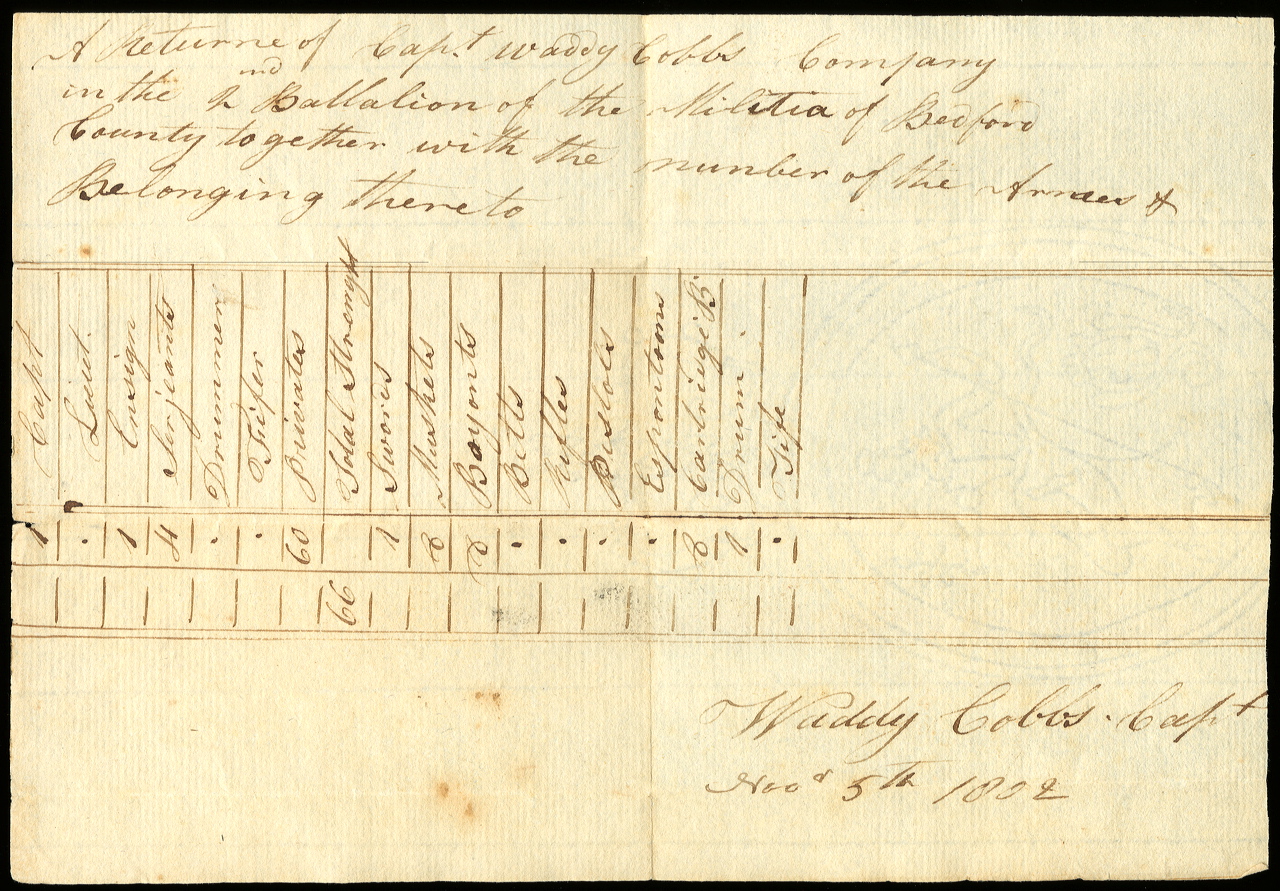 A Returne of Capt Waddy Cobbs Company
in the 2nd Battalion of the Militia of Bedford
County together with the number of the Armes &
Belonging thereto
Capt
Lieut.
Ensign
Serjeants
Drummer
Fifer
Privates
Total Strenght
Swords
Muskets
Bayonts
Belts
Rifles
Pistols
Espontoons
Cartrige B
Drum
Fife
1 . 1 4 . . 60 1 8 8 . . . . 8 1 .
66
Waddy Cobbs. Capt
Novr 5th 1802